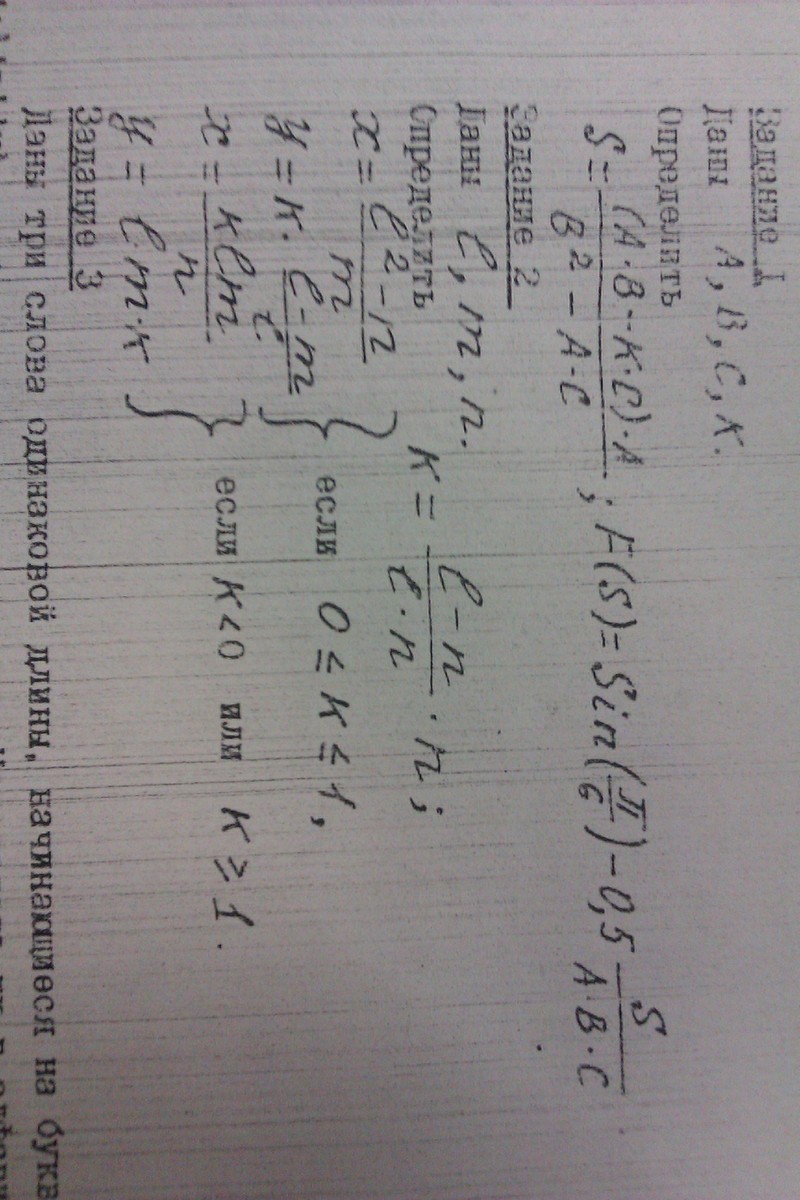 Задание I
Даны A, B, C, K.
Определить
S = (A·B - K·C)·A / B² - A·C ; F(S) = Sin(π/6) - 0,5 S / A·B·C
Задание 2
Даны ℓ, m, n.
Определить K = ℓ - n / ℓ·n · n;
x = ℓ² - n / m
y = K · ℓ - m / t } если 0 ≤ K ≤ 1,
x = Kℓm / n
y = ℓ·m·K } если K < 0 или K ≥ 1.
Задание 3
Даны три слова одинаковой длины, начинающиеся на